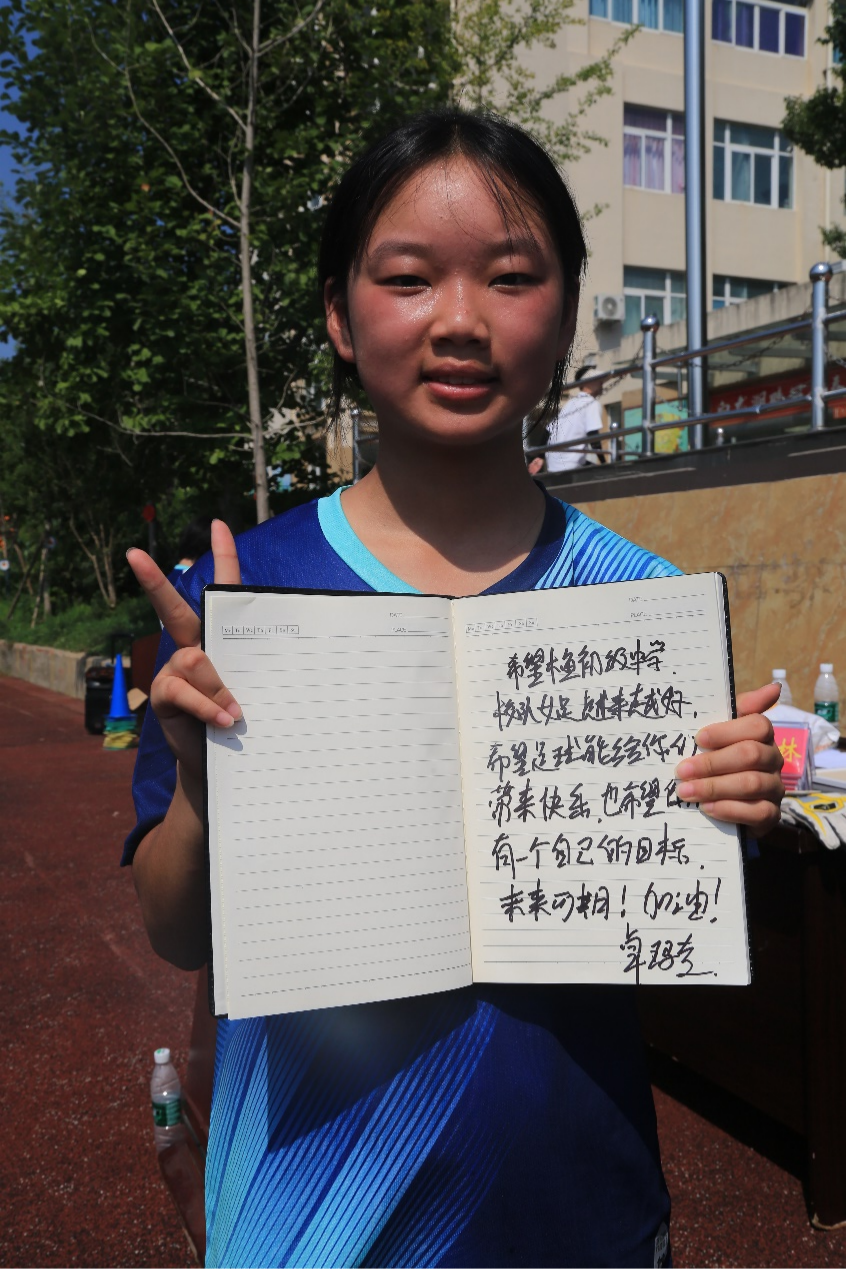 希望木鱼初级中学
校队女足越来越好,
希望足球能给你们
带来快乐,也希望
有一个自己的目标,
未来可期!加油!
林